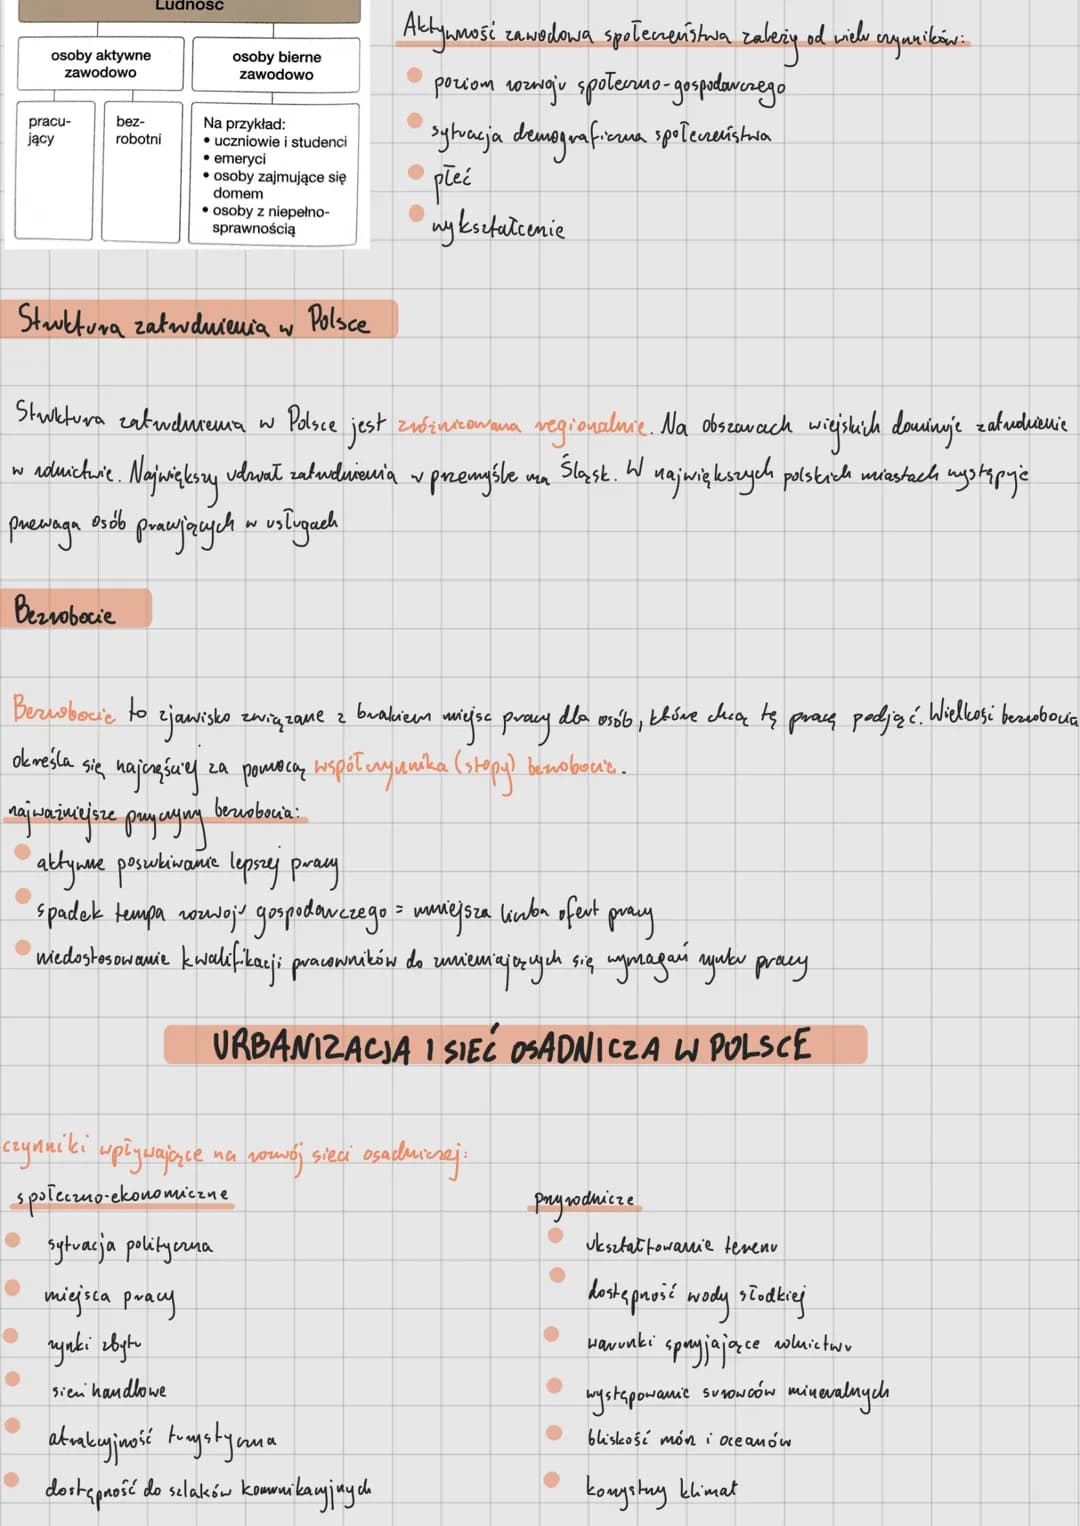 Ludność
osoby aktywne
zawodowo
osoby bierne
zawodowo
pracu-
jący
bez-
robotni
Na przykład:
• uczniowie i studenci
• emeryci
• osoby zajmujące się
domem
• osoby z niepełno-
sprawnością
Aktywność zawodowa społeczeństwa zależy od wielu czynników:
• poziom rozwoju społeczno-gospodarczego
• sytuacja demograficzna społeczeństwa
• płeć
• wykształcenie
Struktura zatrudnienia w Polsce
Struktura zatrudnienia w Polsce jest zróżnicowana regionalnie. Na obszarach wiejskich dominuje zatrudnienie
w rolnictwie. Największy udział zatrudnienia w przemyśle ma Śląsk. W największych polskich miastach występuje
przewaga osób pracujących w usługach
Bezrobocie
Bezrobocie to zjawisko związane z brakiem miejsc pracy dla osób, które chcą tę pracę podjąć. Wielkość bezrobocia
określa się najczęściej za pomocą współczynnika (stopy) bezrobocia.
najważniejsze przyczyny bezrobocia:
• aktywne poszukiwanie lepszej pracy
• spadek tempa rozwoju gospodarczego = mniejsza liczba ofert pracy
• niedostosowanie kwalifikacji pracowników do zmieniających się wymagań rynku pracy
URBANIZACJA I SIEĆ OSADNICZA W POLSCE
czynniki wpływające na rozwój sieci osadniczej:
społeczno-ekonomiczne
• sytuacja polityczna
• miejsca pracy
• rynki zbytu
• sieci handlowe
• atrakcyjność turystyczna
• dostępność do szlaków komunikacyjnych
przyrodnicze
• ukształtowanie terenu
• dostępność wody słodkiej
• warunki sprzyjające rolnictwu
• występowanie surowców mineralnych
• bliskość mórz i oceanów
• korzystny klimat